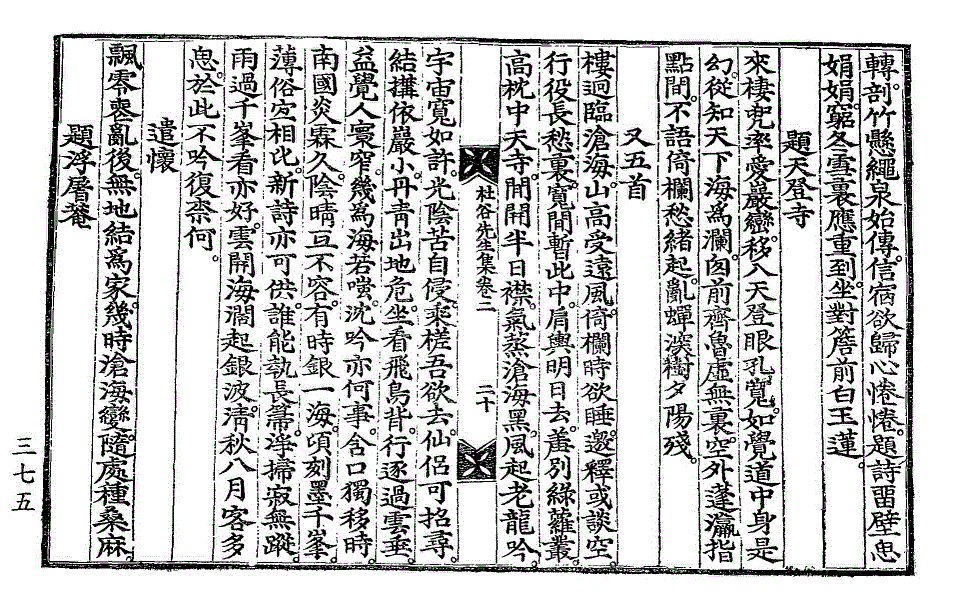 轉。剖竹懸繩泉始傳。信宿欲歸心惓惓。題詩留壁思
娟娟。窮冬雪裏應重到。坐對簷前白玉蓮。
題天登寺
來棲兜率愛巖巒。移入天登眼孔寬。如覺道中身是
幻。從知天下海爲瀾。囱前齊魯虛無裏。空外蓬瀛指
點間。不語倚欄愁緖起。亂蟬深樹夕陽殘。
又五首
樓迥臨滄海。山高受遠風。倚欄時欲睡。邀釋或談空。
行役長愁裏。寬閒暫此中。肩輿明日去。羞別綠蘿叢。
高枕中天寺。閒開半日襟。氣蒸滄海黑。風起老龍吟。
杜谷先生集卷二
二十
宇宙寬如許。光陰苦自侵。乘槎吾欲去。仙侶可招尋。
結搆依巖小。丹靑出地危。坐看飛鳥背。行逐過雲垂。
益覺人寰窄。幾爲海若嗤。沈吟亦何事。含口獨移時
南國炎霖久。陰晴亙不容。有時銀一海。頃刻墨千峯。
薄俗定相比。新詩亦可供。誰能執長箒。淨掃寂無蹤。
雨過千峯看亦好。雲開海濶起銀波。淸秋八月客多
思。於此不吟復柰何。
遣懷
飄零喪亂後。無地結爲家。幾時滄海變。隨處種桑麻。
題浮屠菴
三七五